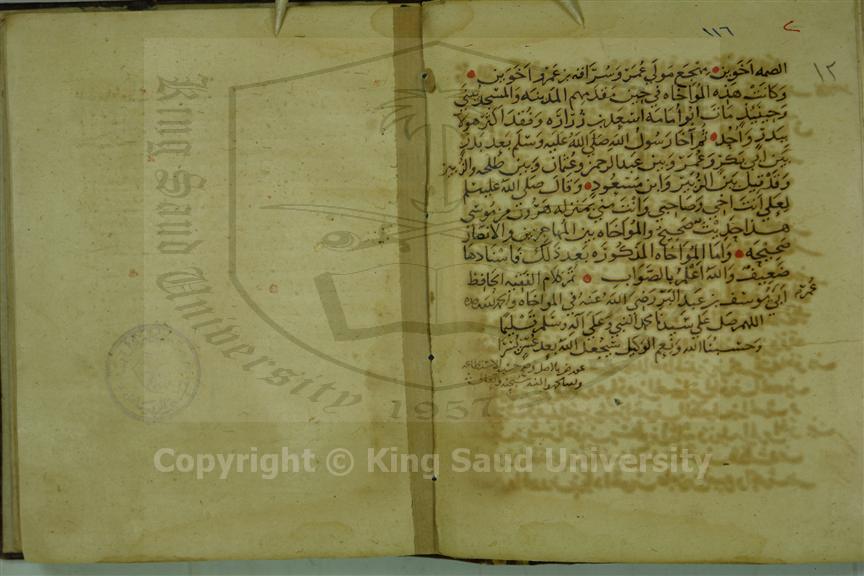 ١١٦
١٢
الصمه اخوين مهجع مولى عمر وسراقه بن عمرو اخوين
وكانت هذه المواخاه في حين قدمهم المدينه والمسجد يبنى
وحينيذ مات ابو امامه اسعد بن زراره وفقد اكثر هولا
ببدر واحد ثم آخا رسول الله صلى الله عليه وسلم بعد بدر
بين ابي بكر وعمر وبين عبد الرحمن وعثمان وبين طلحه والزبير
وقد قيل بين الزبير وابن مسعود وقال صلى الله عليه وسلم
لعلي انت اخي وصاحبي وانت مني بمنزله هرون من موسى
هذا حديث صحيح والمواخاه بين المهاجرين والانصار
صحيحه واما المواخاه المذكوره بعد ذلك فاسنادها
ضعيف والله اعلم بالصواب تم كلام الفقيه الحافظ
ابي يوسف بن عبد البر رضي الله عنه في المواخاه والحمد لله وحده
عمر
اللهم صل على سيدنا محمد النبي وعلى آله وسلم تسليما
وحسبنا الله ونعم الوكيل سيجعل الله بعد عسر يسرا
بالاصل
ولله الحمد والمنه
King Saud University
1957
Copyright © King Saud University